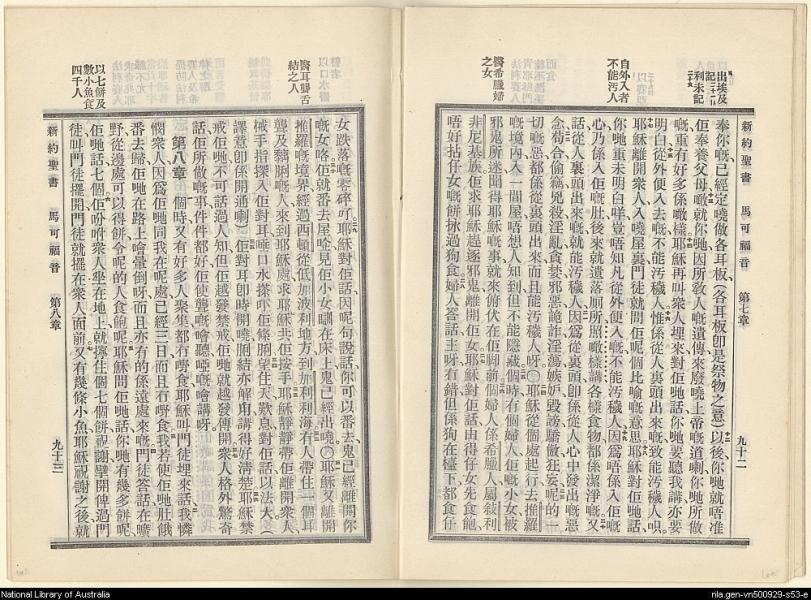 出埃及
利未記
自外入者
不能汚人
醫希臘婦
之女
新約聖書 馬可福音 第七章 九十二
奉你嘅、已經定嘵做各耳板、(各耳板卽是祭物之意)以後你哋就唔准
佢奉養父母嘅、就你哋因所敎人嘅遺傳、來廢嘵上帝嘅道喇、你哋所做
嘅、重有好多係噉樣、耶穌再叫衆人埋來、對佢哋話、你哋要聽我講、亦要
明白、從外便入去嘅、不能汚穢人、惟係從人裏頭出來嘅、致能汚穢人
耶穌離開衆人、入嘵屋裏、門徒就問佢呢個比喻嘅意思、耶穌對佢哋話、
你哋重未明白咩、豈唔知凡從外便入嘅、不能汚穢人、因爲唔係入佢嘅
心、乃係入佢嘅肚、後來就遺落廁所、照噉樣講、各樣食物都係潔淨嘅、又
話、從人裏頭出來嘅、就能汚穢人、因爲從裏頭、卽係從人心中、發出嘅惡
念、苟合、偷竊、兇殺、淫亂、貪婪、邪惡、詭詐、淫蕩、嫉妒、毀謗、驕傲、狂妄、呢的一
切嘅惡、都係從裏頭出來、而且能汚穢人呀、○耶穌從個處起行、去推羅
嘅境內、入一間屋、唔想人知到、但不能隱藏、個時有個婦人、佢嘅小女被
邪鬼所迷、聞得耶穌嘅事、就來俯伏在佢脚前、個婦人係希臘人、屬敘利
非尼基族、佢求耶穌趕逐邪鬼離開佢女、耶穌對佢話、由得仔女先食飽、
唔好拈仔女嘅餅、拋過狗食、婦人答話、主呀、有錯、但係狗在檯下、都食仔
醫耳聾舌
結之人
以七餅及
數小魚食
四千人
女跌落嘅零碎吖、耶穌對佢話、因呢句說話、你可以番去、鬼已經離開你
嘅女咯、佢就番去屋、見佢小女瞓在床上、鬼已經出嘵、○耶穌又離開
推羅嘅境界、經過西頓、從低加波利地方、到加利利海、有人帶住一個耳
聾及黐脷嘅人、來到耶穌處、求耶穌共佢按手、耶穌靜靜帶佢離開衆人、
械手指探入佢對耳、唾口水搽吓佢條脷、望住天歎息、對佢話、以法大、(
譯意卽係開通喇)佢對耳卽時開嘵、脷結亦解甪、講得好淸楚、耶穌禁
戒佢哋、不可話過人知、但佢越發禁戒、佢哋就越發傳開、衆人格外驚奇、
話、佢所做嘅事、件件都好、佢使聾嘅會聽、啞嘅會講呀、
第八章 個時又有好多人聚集、都冇嘢食、耶穌叫門徒埋來、話、我憐
憫衆人、因爲佢哋同我在呢處、已經三日、而且冇嘢食、我若使佢哋肚餓
番去歸、佢哋在路上會暈倒呀、而且亦有的係遠處來嘅、門徒答話、在曠
野從邊處可以得餅、令呢的人食飽呢、耶穌問佢哋話、你哋有幾多餅呢、
佢哋話、七個、佢吩咐衆人坐在地上、就擰住個七個餅、祝謝擘開、俾過門
徒、叫門徒擺開、門徒就擺在衆人面前、又有幾條小魚、耶穌祝謝之後、就
新約聖書 馬可福音 第八章 九十三
National Library of Australia
nla.gen-vn500929-s53-e